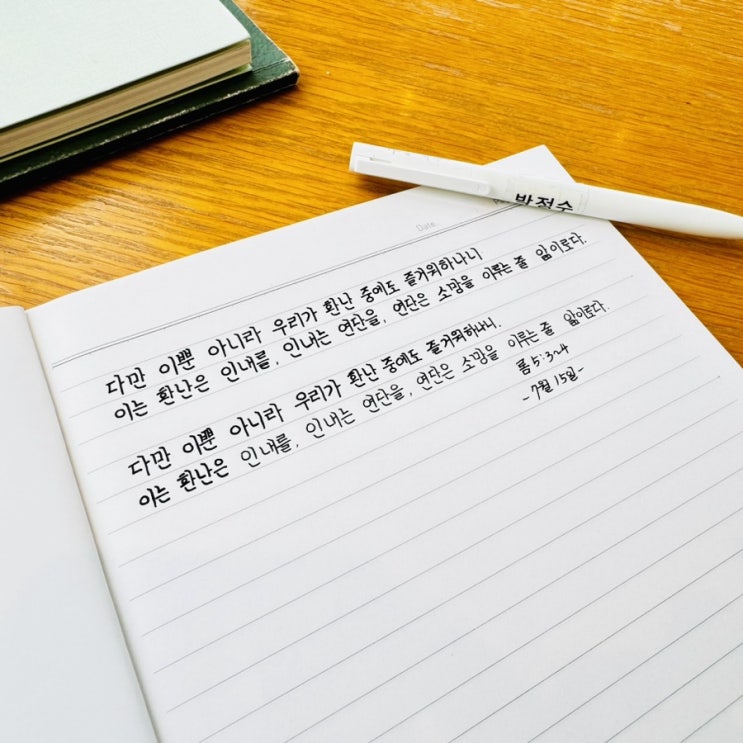 Date
박정수
다만 이뿐 아니라 우리가 환난 중에도 즐거워하나니
이는 환난은 인내를, 인내는 연단을, 연단은 소망을 이루는 줄 앎이로다.
다만 이뿐 아니라 우리가 환난 중에도 즐거워하나니.
이는 환난은 인내를, 인내는 연단을, 연단은 소망을 이루는 줄 앎이로다.
롬 5:3-4
-7월 15일-